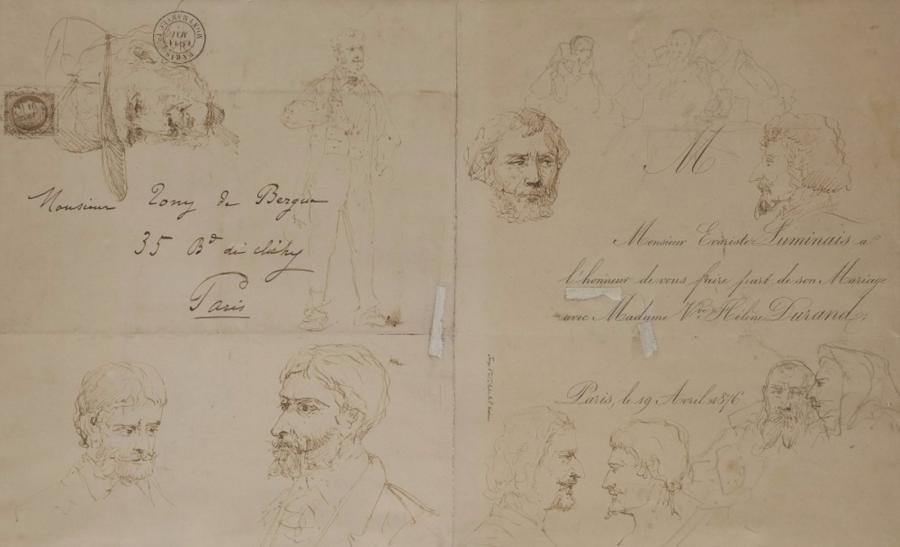 Monsieur Tony de Bergue
35 Bd de clichy
Paris
M
Monsieur Evariste Luminais a
l'honneur de vous faire part de son Mariage
avec Madame Vve Hélène Durand;
Paris, le 19 Avril 1876